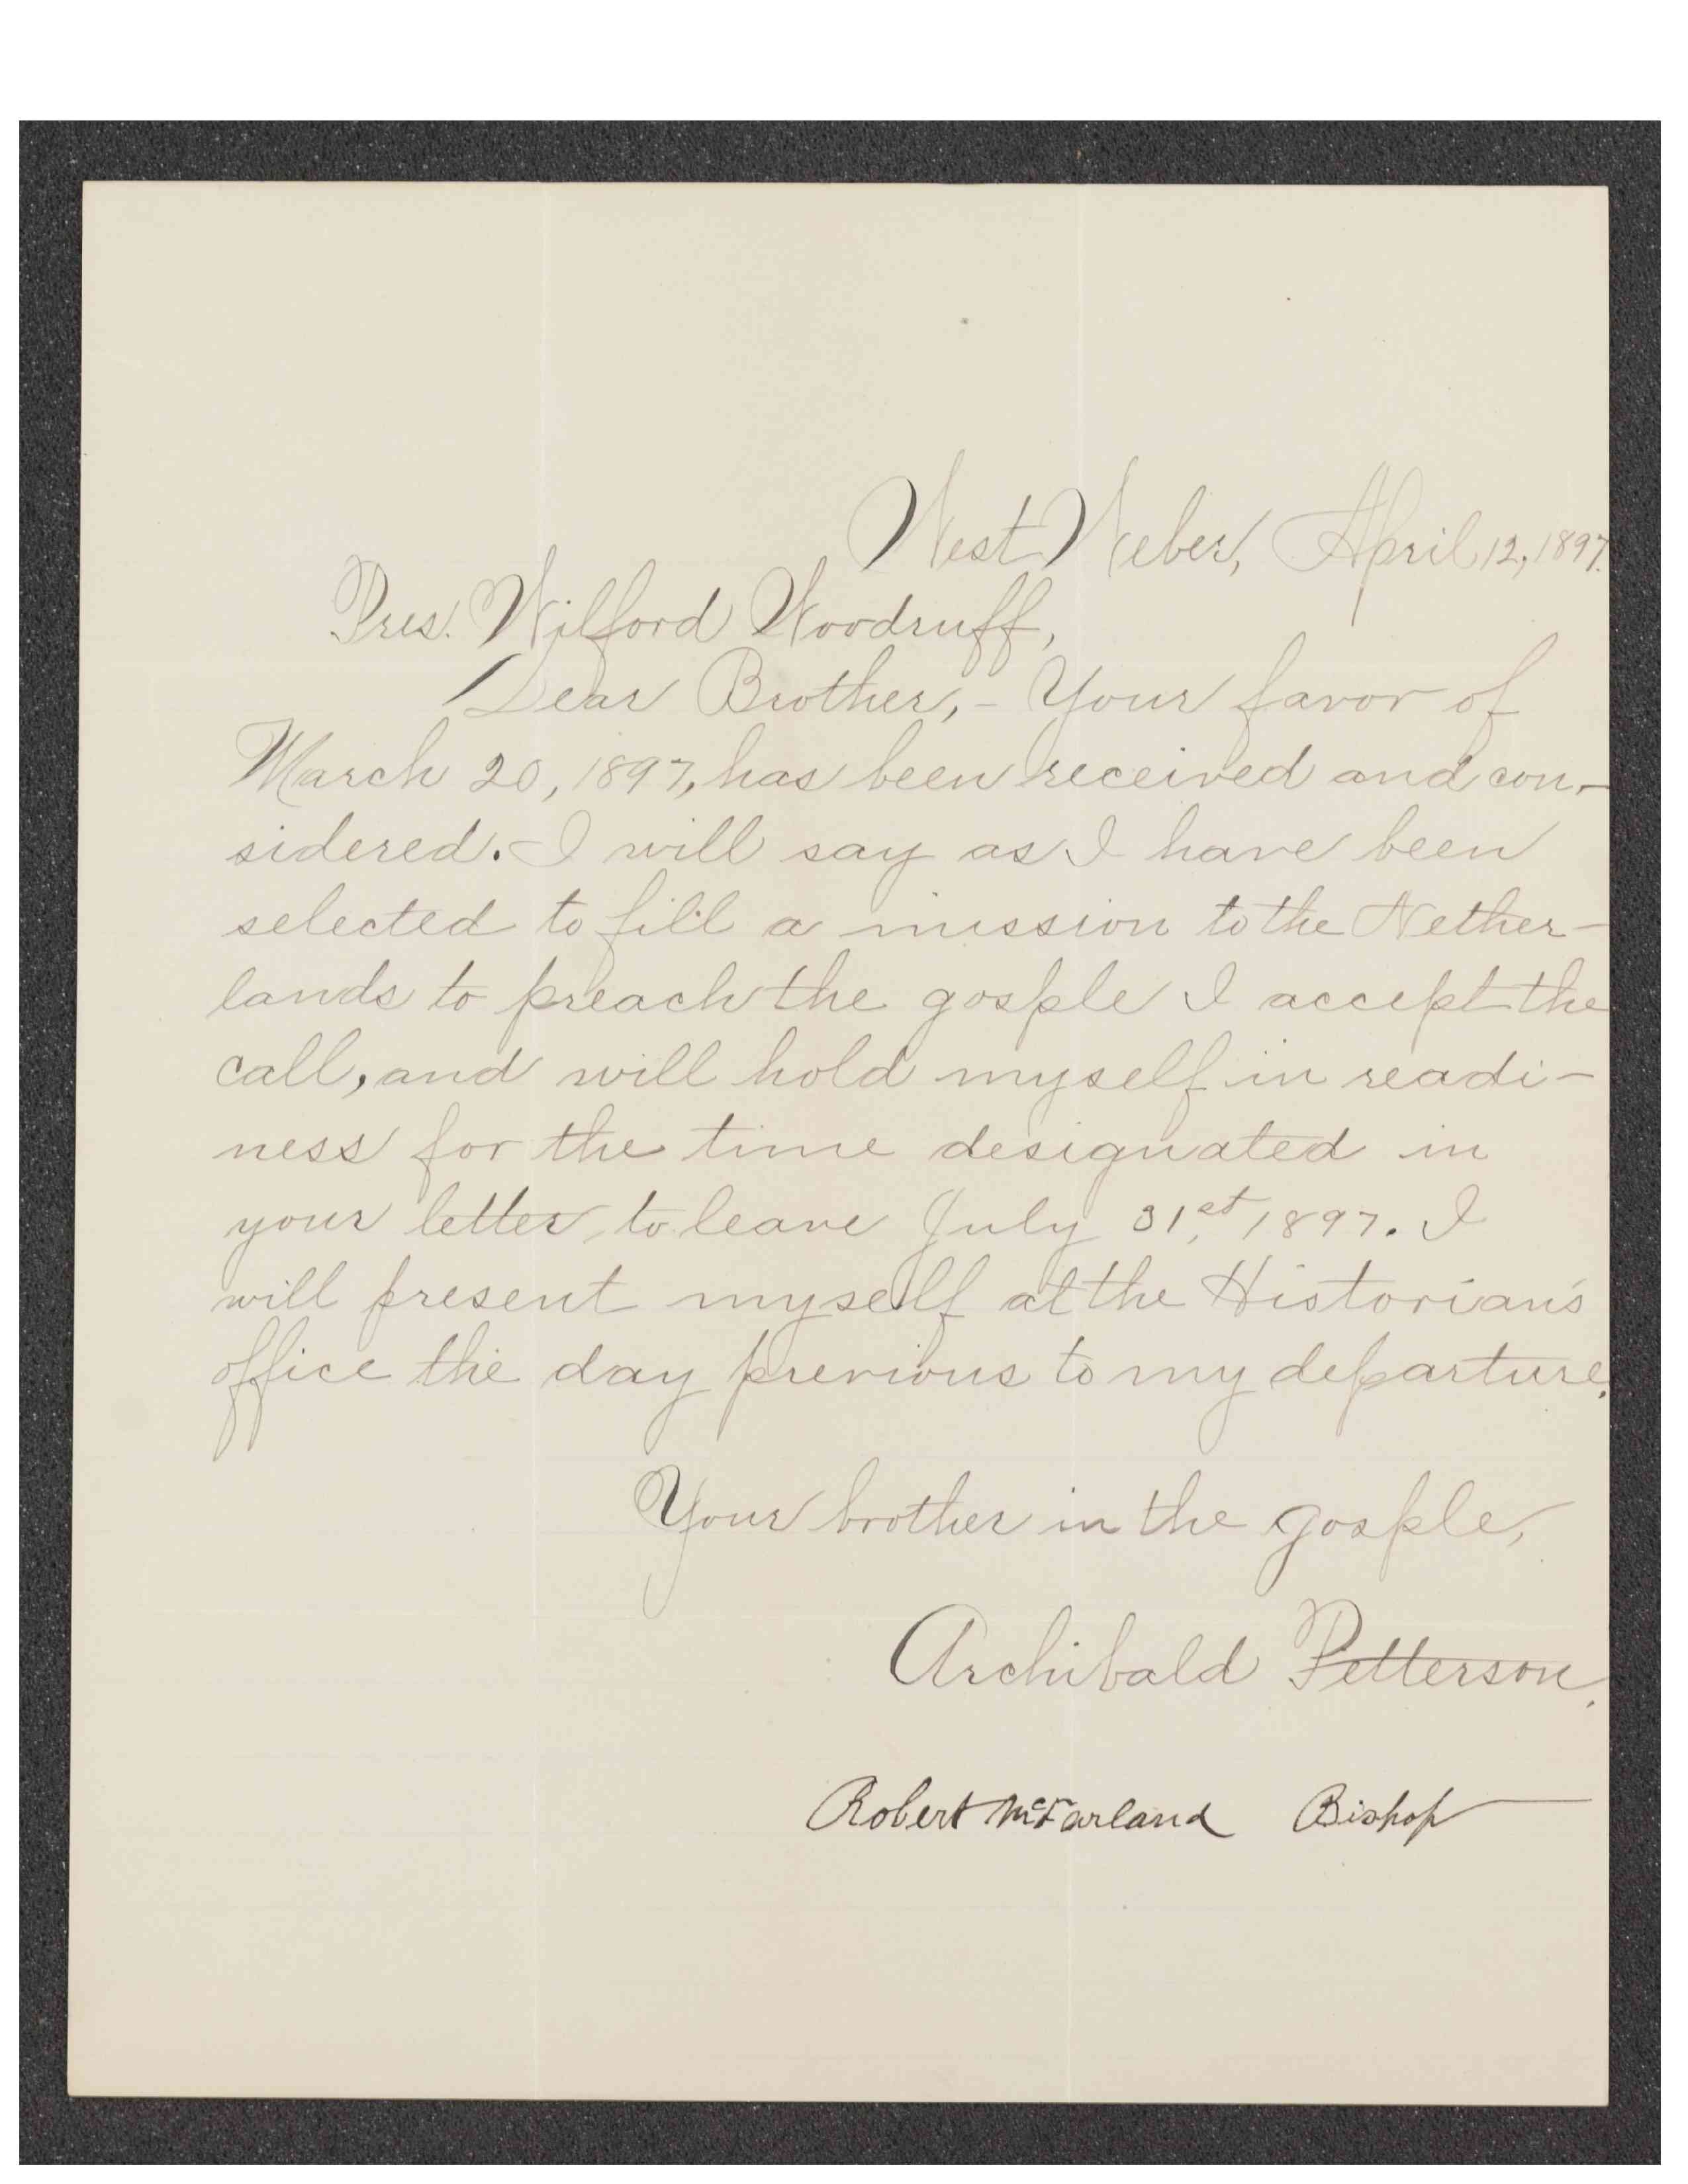 West Weber, April 12, 1897.
Pres. Wilford Woodruff,
Dear Brother,- Your favor of
March 20, 1897, has been received and con-
sidered. I will say as I have been
selected to fill a mission to the Nether-
lands to preach the gosple I accept the
call, and will hold myself in readi-
ness for the time designated in
your letter, to leave July 31st, 1897. I
will present myself at the Historian's
office the day previous to my departure.
Your brother in the gosple,
Archibald Petterson.
Robert McFarland Bishop